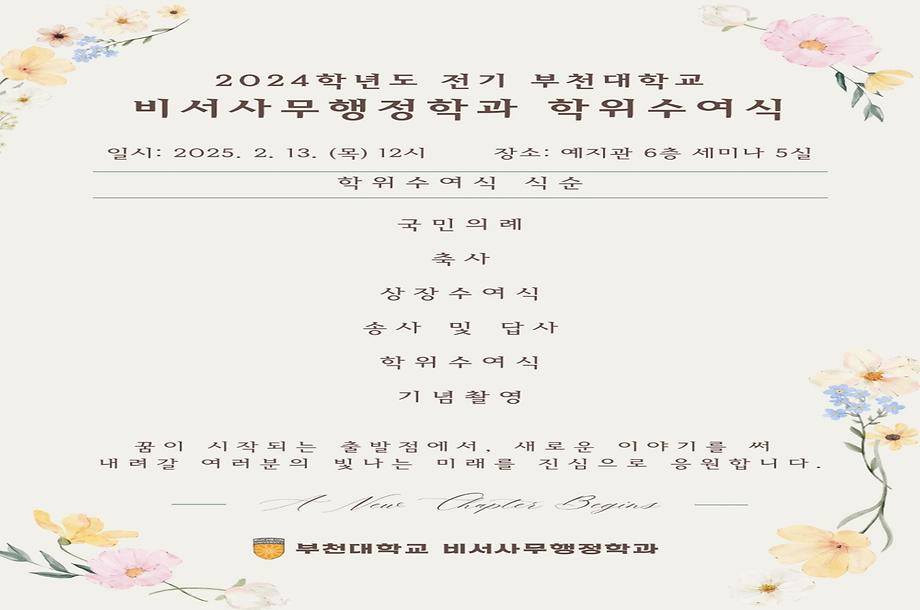 2024학년도 전기 부천대학교
비서사무행정학과 학위수여식
일시: 2025. 2. 13. (목) 12시 장소: 예지관 6층 세미나 5실
학위수여식 식순
국민의례
축사
상장수여식
송사 및 답사
학위수여식
기념촬영
꿈이 시작되는 출발점에서, 새로운 이야기를 써
내려갈 여러분의 빛나는 미래를 진심으로 응원합니다.
A New Chapter Begins
부천대학교 비서사무행정학과